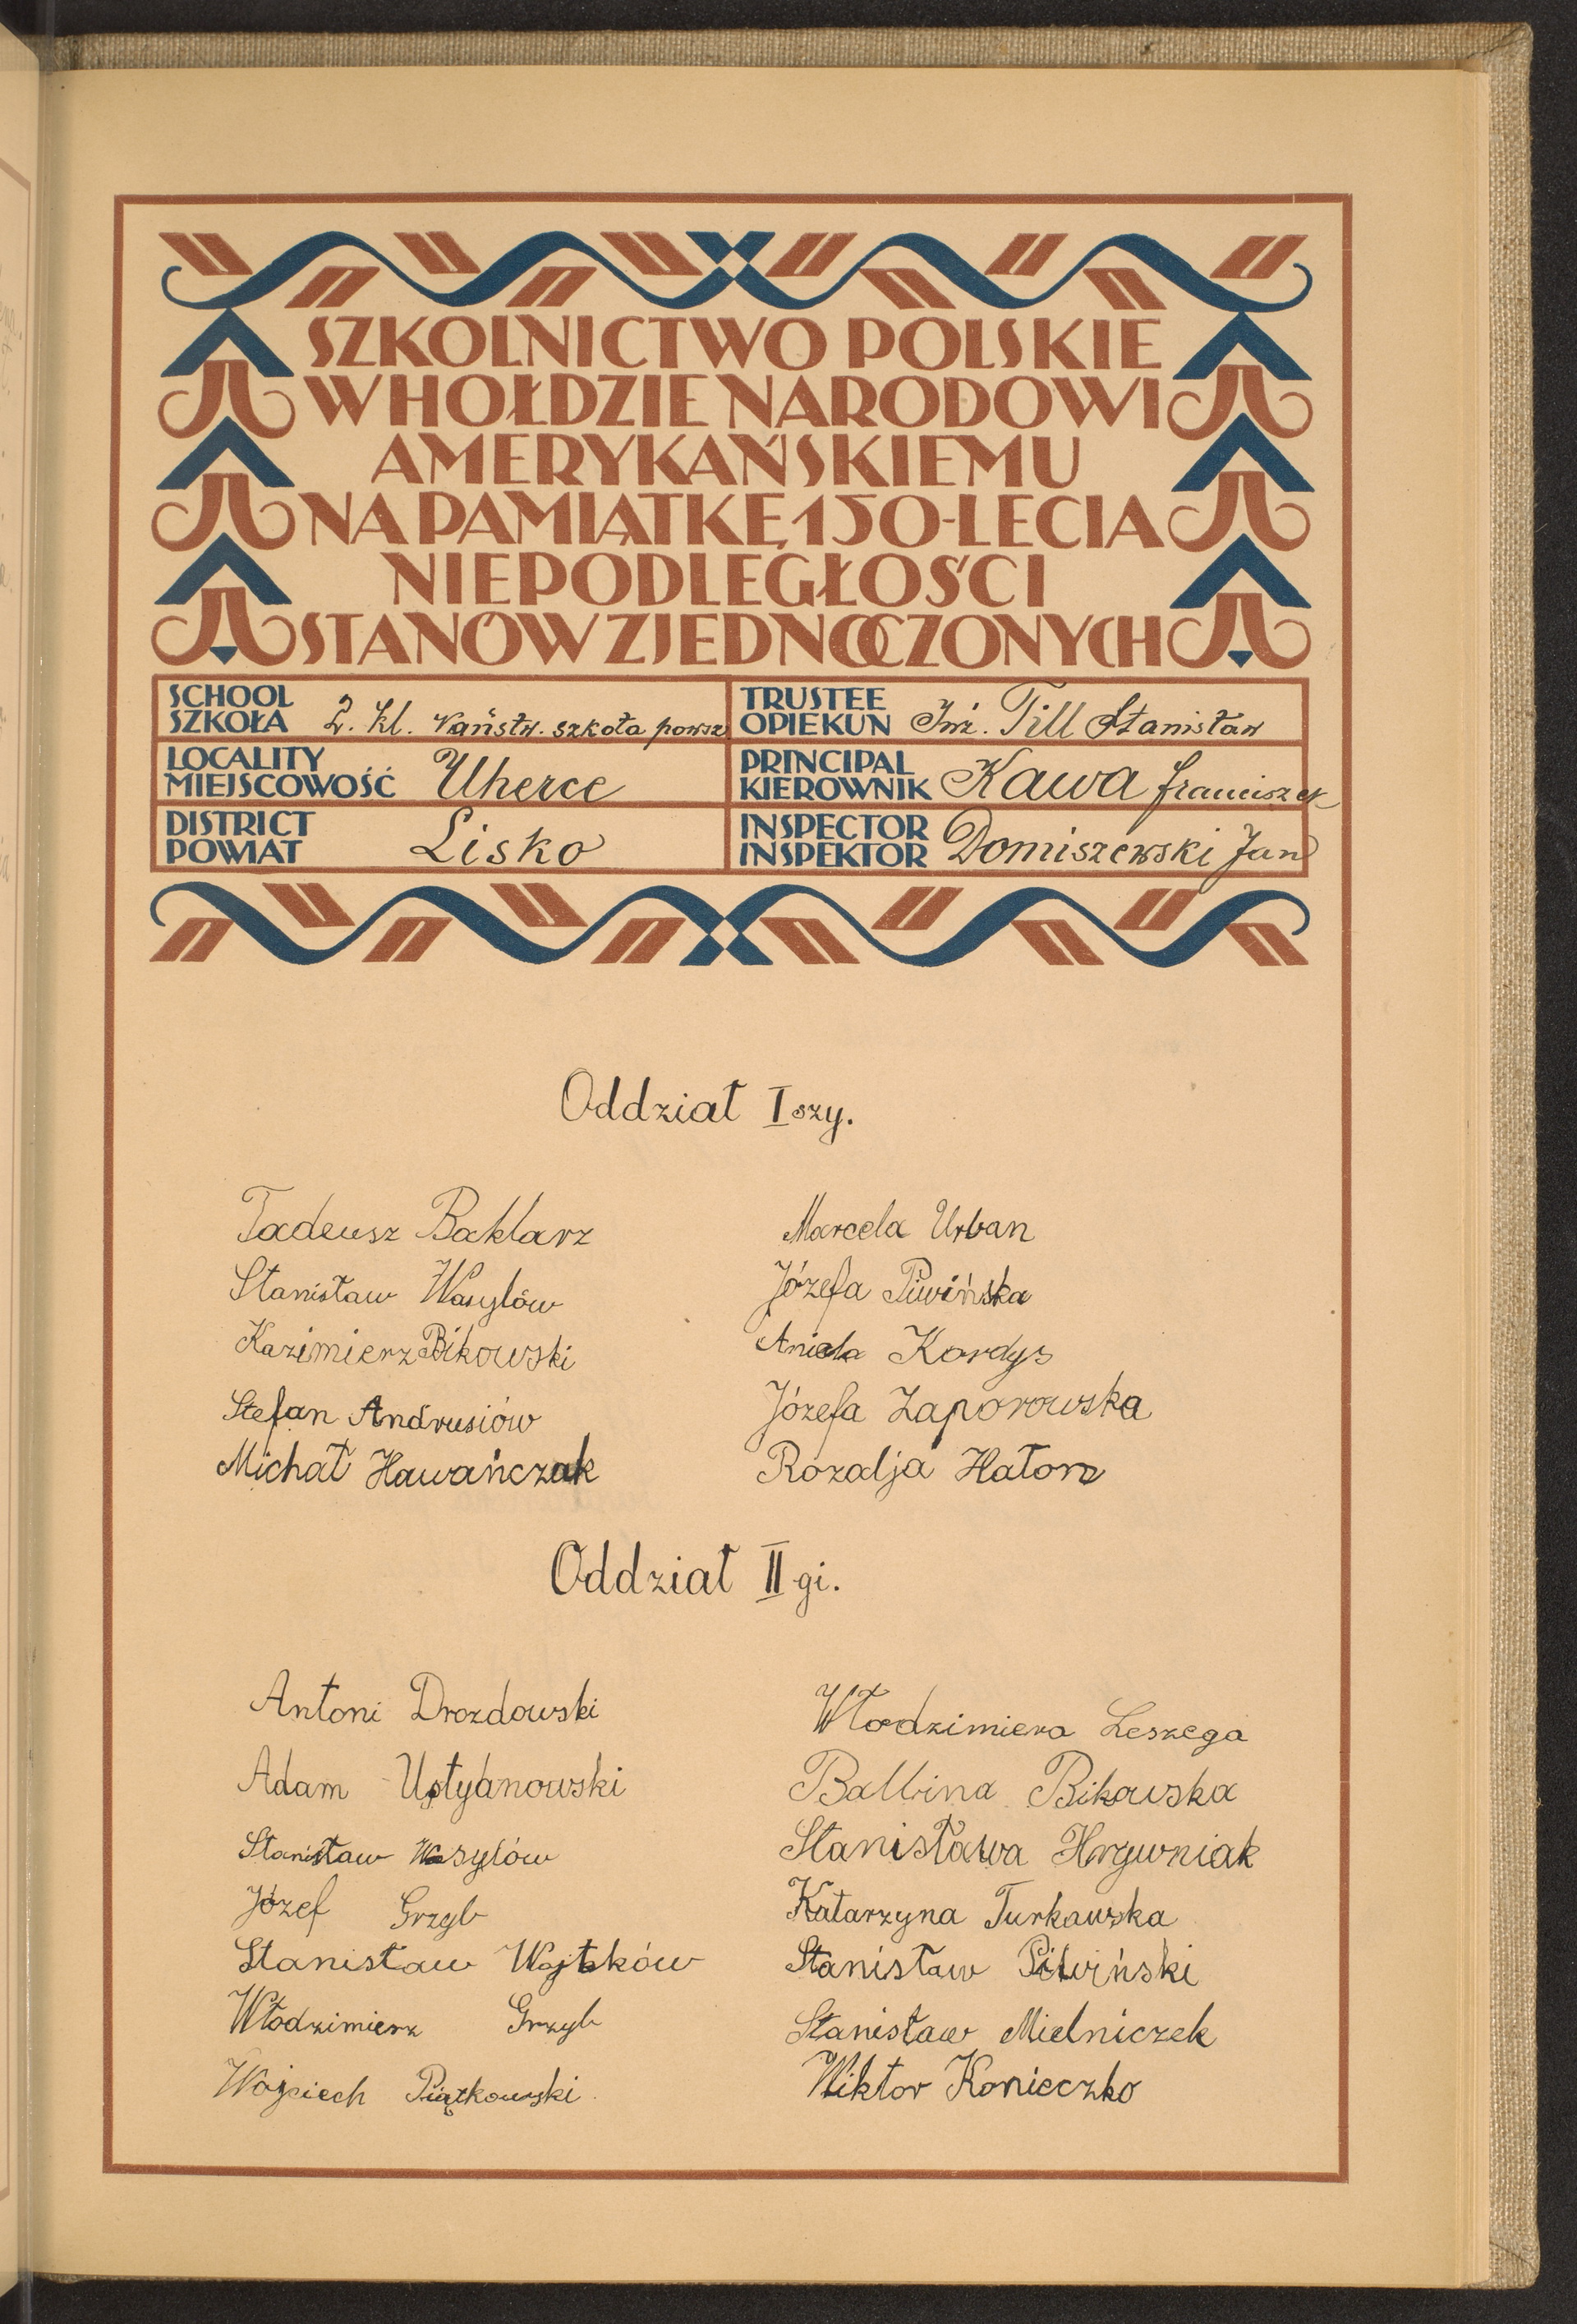 SZKOLNICTWO POLSKIE
W HOŁDZIE NARODOWI
AMERYKAŃSKIEMU
NA PAMIĄTKĘ 150-LECIA
NIEPODLEGŁOŚCI
STANÓW ZJEDNOCZONYCH
SCHOOL
SZKOŁA 2. kl. Państw. szkoła powsz
TRUSTEE
OPIEKUN Inż. Till Stanisław
LOCALITY
MIEJSCOWOŚĆ Uherce
PRINCIPAL
KIEROWNIK Kawa Franciszek
DISTRICT
POWIAT Lisko
INSPECTOR
INSPEKTOR Domiszewski Jan
Oddział I szy.
Tadeusz Baklarz
Stanisław Wasylów
Kazimierz Bikowski
Stefan Andrusiów
Michał Hawańczak
Marcela Urban
Józefa Piwińska
Aniela Kordys
Józefa Zaporowska
Rozalja Hałon
Oddział II gi.
Antoni Drozdowski
Adam Ustyanowski
Stanisław Wasylów
Józef Grzyb
Stanisław Wojtków
Włodzimierz Grzyb
Wojciech Piątkowski
Włodzimiera Leszega
Balbina Bikowska
Stanisława Hrywniak
Katarzyna Turkawska
Stanisław Piwiński
Stanisław Mielniczek
Wiktor Konieczko